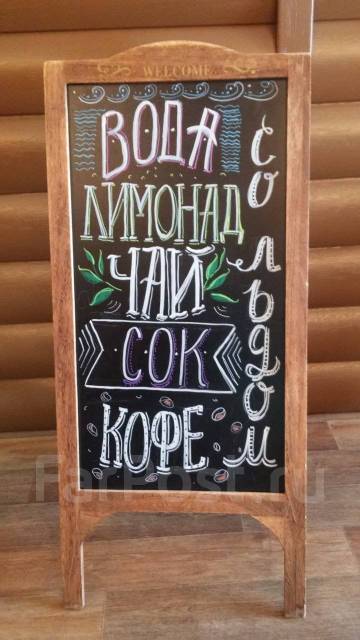 WELCOME
ВОДА
ЛИМОНАД
ЧАЙ
СОК
КОФЕ
со льдом
FarPost.ru